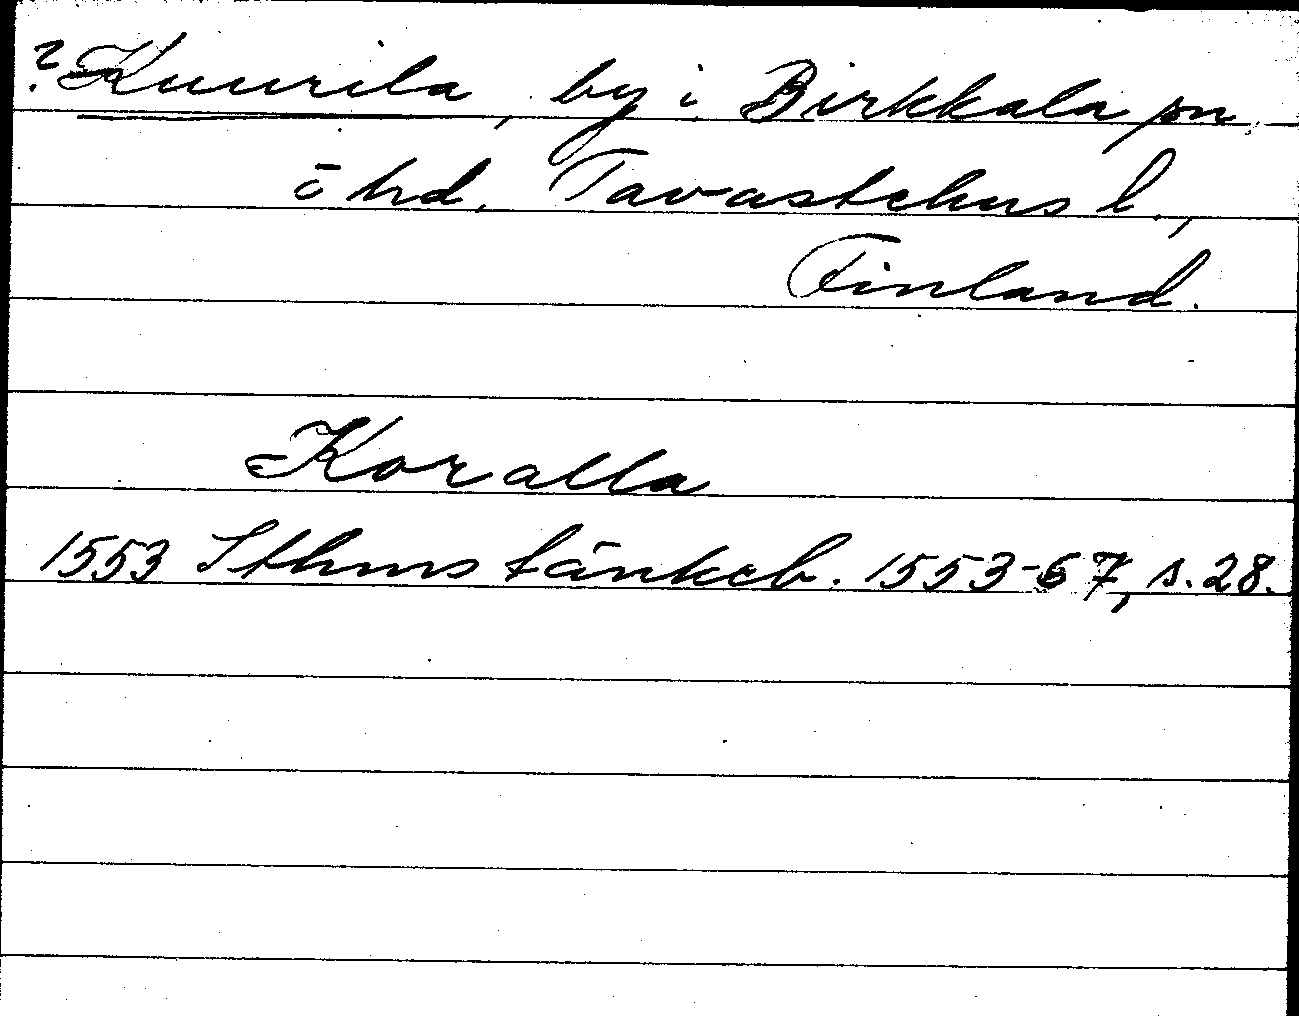 ? Kuurila, by i Birkkala sn,
ö hd. Tavastehus l.,
Finland.
Koralla
1553 Sthms tänkeb. 1553-67, s. 28.